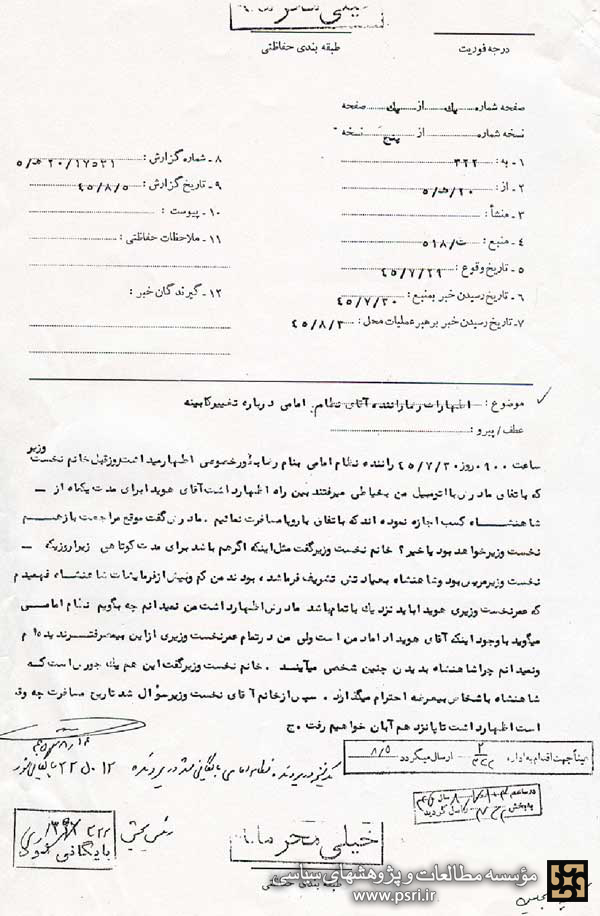 خیلی محرمانه
طبقه بندی حفاظتی
درجه فوریت
صفحه شماره یک از یک صفحه
نسخه شماره از پنج نسخه
۱ـ به : ۳۲۲
۲ـ از : ۲۰/ه‍/۵
۳ـ منشأ :
۴ـ منبع : ۵۱۸/ت
۵ـ تاریخ وقوع : ۴۵/۷/۲۹
۶ـ تاریخ رسیدن خبر بمنبع : ۴۵/۷/۳۰
۷ـ تاریخ رسیدن خبر برهبر عملیات محل : ۴۵/۸/۳
۸ـ شماره گزارش : ۲۰/۱۷۵۳۱ ه‍/۵
۹ـ تاریخ گزارش : ۴۵/۸/۵
۱۰ـ پیوست :
۱۱ـ ملاحظات حفاظتی :
۱۲ـ گیرندگان خبر :
موضوع : اظهارات رضا راننده آقای نظام امامی درباره تغییر کابینه
عطف/پیرو :
ساعت ۰۹۰۰ روز ۴۵/۷/۳۰ راننده نظام امامی بنام رضا بطور خصوصی اظهار میداشت روز قبل خانم نخست وزیر
که باتفاق مادرش با اتومبیل من بخیاطی میرفتند بین راه اظهار داشت آقای هویدا برای مدت یکماه از
شاهنشاه کسب اجازه نموده اند که باتفاق باروپا مسافرت نمائیم . مادرش گفت موقع مراجعت باز هم
نخست وزیر خواهد بود یا خیر؟ خانم نخست وزیر گفت مثل اینکه اگر هم باشد برای مدت کوتاهی زیرا روزیکه
نخست وزیر مریض بود و شاهنشاه بعیادتش تشریف فرما شده بودند من کم و بیش از فرمایشات شاهنشاه فهمیدم
که عمر نخست وزیری هویدا باید نزدیک باتمام باشد مادرش اظهار داشت من نمیدانم چه بگویم نظام امامی
میگوید با وجود اینکه آقای هویدا داماد من است ولی من در تمام عمر نخست وزیری از این بیعرضه‌تر ندیده‌ام
و نمیدانم چرا شاهنشاه بدیدن چنین شخصی میآیند . خانم نخست وزیر گفت این هم یک جورش است که
شاهنشاه باشخاص بیعرضه احترام میگذارند . سپس از خانم آقای نخست وزیر سؤال شد تاریخ مسافرت چه وقت
است اظهار داشت تا پانزدهم آبان خواهیم رفت . ج
عیناً جهت اقدام به اداره ارسال میگردد ۸/۵
بایگانی شود
خیلی محرمانه
طبقه بندی حفاظتی
مؤسسه مطالعات و پژوهشهای سیاسی
www.psri.ir